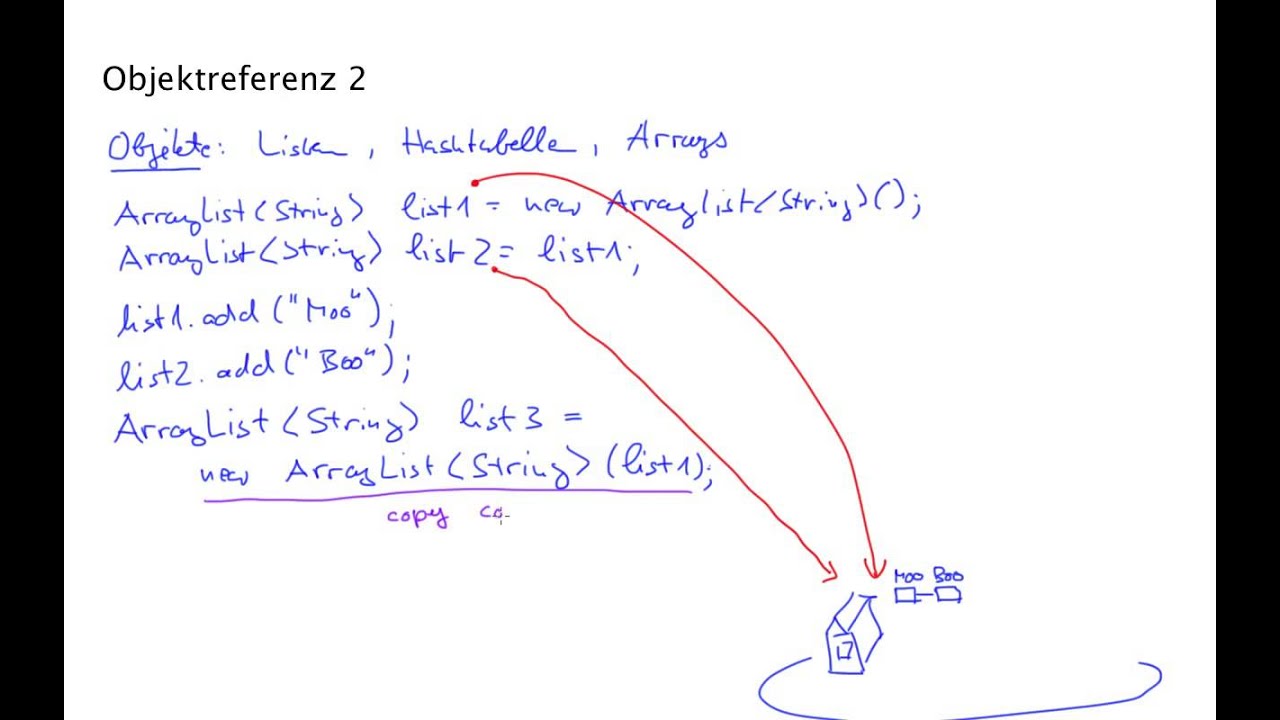 Objektreferenz 2
Objekte: Listen, Hashtabelle, Arrays
ArrayList<String> list1 = new ArrayList<String>();
ArrayList<String> list2 = list1;
list1.add("Moo");
list2.add("Boo");
ArrayList<String> list3 =
new ArrayList<String>(list1);
copy co
Moo Boo